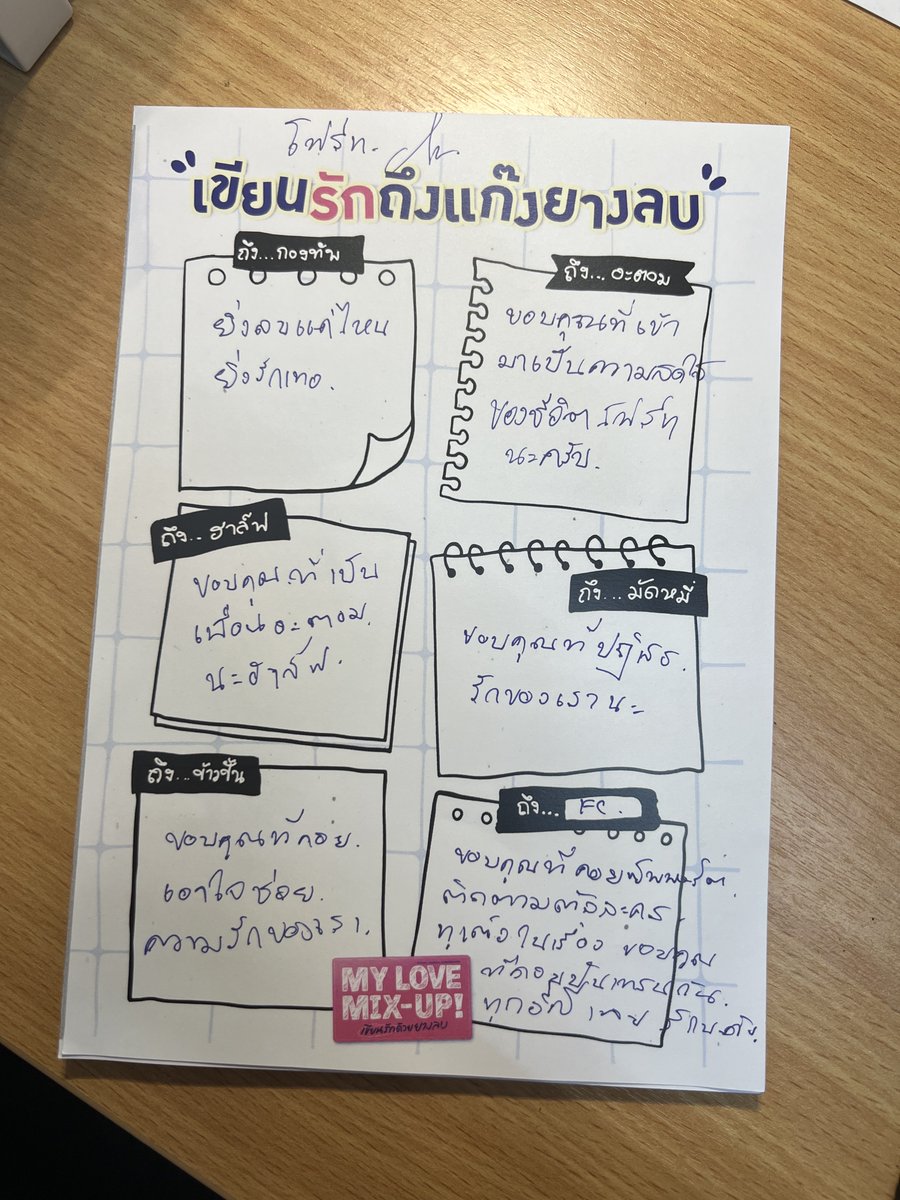 โฟร์ท.
"เขียนรักถึงแก๊งยางลบ"
ถึง...กองทัพ
ยิ่งลบแค่ไหน
ยิ่งรักเทอ.
ถึง...อะตอม
ขอบคุณที่เข้า
มาเป็นความสดใส
ของชีวิตโฟร์ท
นะครับ.
ถึง...ฮาล์ฟ
ขอบคุณที่เป็น
เพื่อนอะตอม.
นะฮาล์ฟ.
ถึง...มัดหมี่
ขอบคุณที่ปฏิเสธ.
รักของเรานะ
ถึง...ข้าวปั้น
ขอบคุณที่คอย.
เอาใจช่วย.
ความรักของเรา.
ถึง... FC.
ขอบคุณที่คอยซัพพอร์ต.
ติดตามตัวละคร.
ทุกตัวในเรื่อง ขอบคุณ
ที่คอยปั่นเทรนกัน.
ทุกอีพี เลย รักนะครับ.
MY LOVE
MIX-UP!
เขียนรักด้วยยางลบ